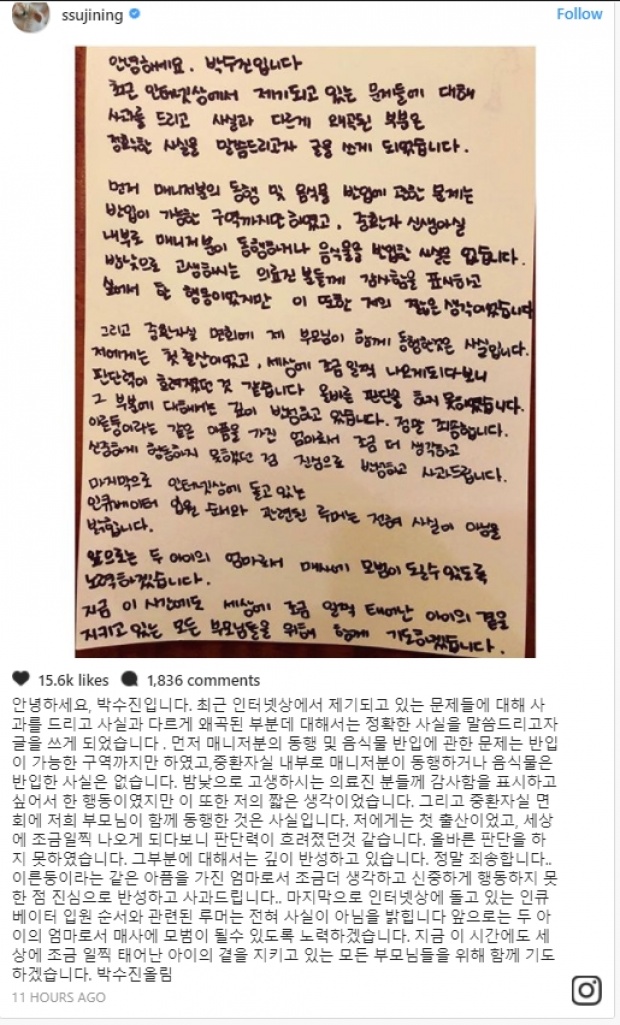 ssujining
Follow
안녕하세요. 박수진입니다
최근 인터넷상에서 제기되고 있는 문제들에 대해
사과를 드리고 사실과 다르게 왜곡된 부분은
정확한 사실을 말씀드리고자 글을 쓰게 되었습니다.
먼저 매니저분의 동행 및 음식물 반입에 관한 문제는
반입이 가능한 구역까지만 하였고, 중환자 신생아실
내부로 매니저분이 동행하거나 음식물을 반입한 사실은 없습니다.
밤낮으로 고생하시는 의료진 분들께 감사함을 표시하고
싶어서 한 행동이었지만 이 또한 저의 짧은 생각이었습니다
그리고 중환자실 면회에 제 부모님이 함께 동행한것은 사실입니다.
저에게는 첫 출산이었고, 세상에 조금 일찍 나오게되다보니
판단력이 흐려졌던 것 같습니다 올바른 판단을 하지 못하였습니다.
그 부분에 대해서는 깊이 반성하고 있습니다. 정말 죄송합니다.
이른둥이라는 같은 아픔을 가진 엄마로서 조금 더 생각하고
신중하게 행동하지 못했던 점 진심으로 반성하고 사과드립니다.
마지막으로 인터넷상에 돌고 있는
인큐베이터 입원 순서와 관련된 루머는 전혀 사실이 아님을
밝힙니다.
앞으로는 두 아이의 엄마로서 매사에 모범이 될수 있도록
노력하겠습니다.
지금 이 시간에도 세상에 조금 일찍 태어난 아이의 곁을
지키고 있는 모든 부모님들을 위해 함께 기도하겠습니다.
15.6k likes 1,836 comments
안녕하세요, 박수진입니다. 최근 인터넷상에서 제기되고 있는 문제들에 대해 사
과를 드리고 사실과 다르게 왜곡된 부분데 대해서는 정확한 사실을 말씀드리고자
글을 쓰게 되었습니다 . 먼저 매니저분의 동행 및 음식물 반입에 관한 문제는 반입
이 가능한 구역까지만 하였고,중환자실 내부로 매니저분이 동행하거나 음식물은
반입한 사실은 없습니다. 밤낮으로 고생하시는 의료진 분들께 감사함을 표시하고
싶어서 한 행동이였지만 이 또한 저의 짧은 생각이었습니다. 그리고 중환자실 면
회에 저희 부모님이 함께 동행한 것은 사실입니다. 저에게는 첫 출산이었고, 세상
에 조금일찍 나오게 되다보니 판단력이 흐려졌던것 같습니다. 올바른 판단을 하
지 못하였습니다. 그부분에 대해서는 깊이 반성하고 있습니다. 정말 죄송합니다..
이른둥이라는 같은 아픔을 가진 엄마로서 조금더 생각하고 신중하게 행동하지 못
한 점 진심으로 반성하고 사과드립니다.. 마지막으로 인터넷상에 돌고 있는 인큐
베이터 입원 순서와 관련된 루머는 전혀 사실이 아님을 밝힙니다 앞으로는 두 아
이의 엄마로서 매사에 모범이 될수 있도록 노력하겠습니다. 지금 이 시간에도 세
상에 조금 일찍 태어난 아이의 곁을 지키고 있는 모든 부모님들을 위해 함께 기도
하겠습니다. 박수진올림
11 HOURS AGO